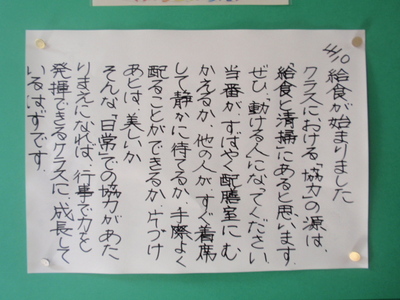 4/10 給食が始まりました
クラスにおける「協力」の源は、
給食と清掃にあると思います。
ぜひ、「動ける人」になってください
当番が、すばやく配膳室にむ
かえるか、他の人が、すぐ着席
して静かに待てるか、手際よく
配ることができるか、片づけ
あとは、美しいか
そんな「日常」での協力があた
りまえになれば、行事で力を
発揮できるクラスに、成長して
いるはずです。